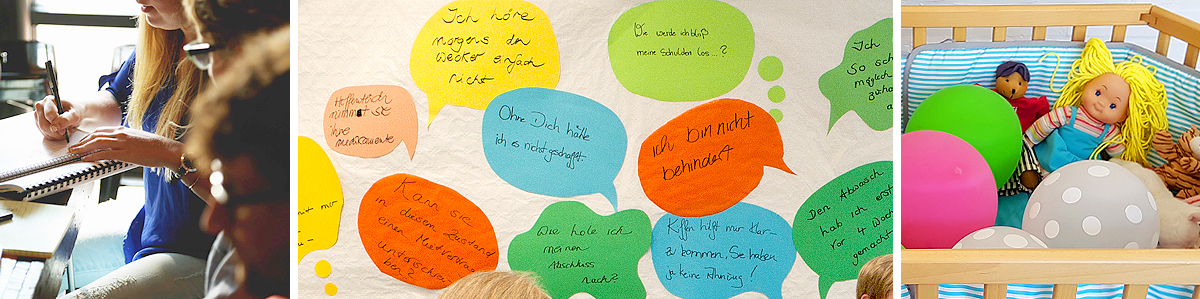 Ich höre
morgens den
Wecker einfach
nicht
Wie werde ich bloß
meine Schulden los...?
Ich
So sch
möglich
zuha
a
Hoffentlich
nimmt sie
ihre
Medikamente
Ohne Dich hätte
ich es nicht geschafft.
ich bin nicht
behindert
Kann sie
in diesem Zustand
einen Mietvertrag
unterschrei
ben?
Wie hole ich
meinen
Abschluss
nach?
Kiffen hilft mir klar-
zu kommen, Sie haben
ja keine Ahnung!
Den Abwasch
hab ich erst
vor 4 Woch
gemacht
mit mir